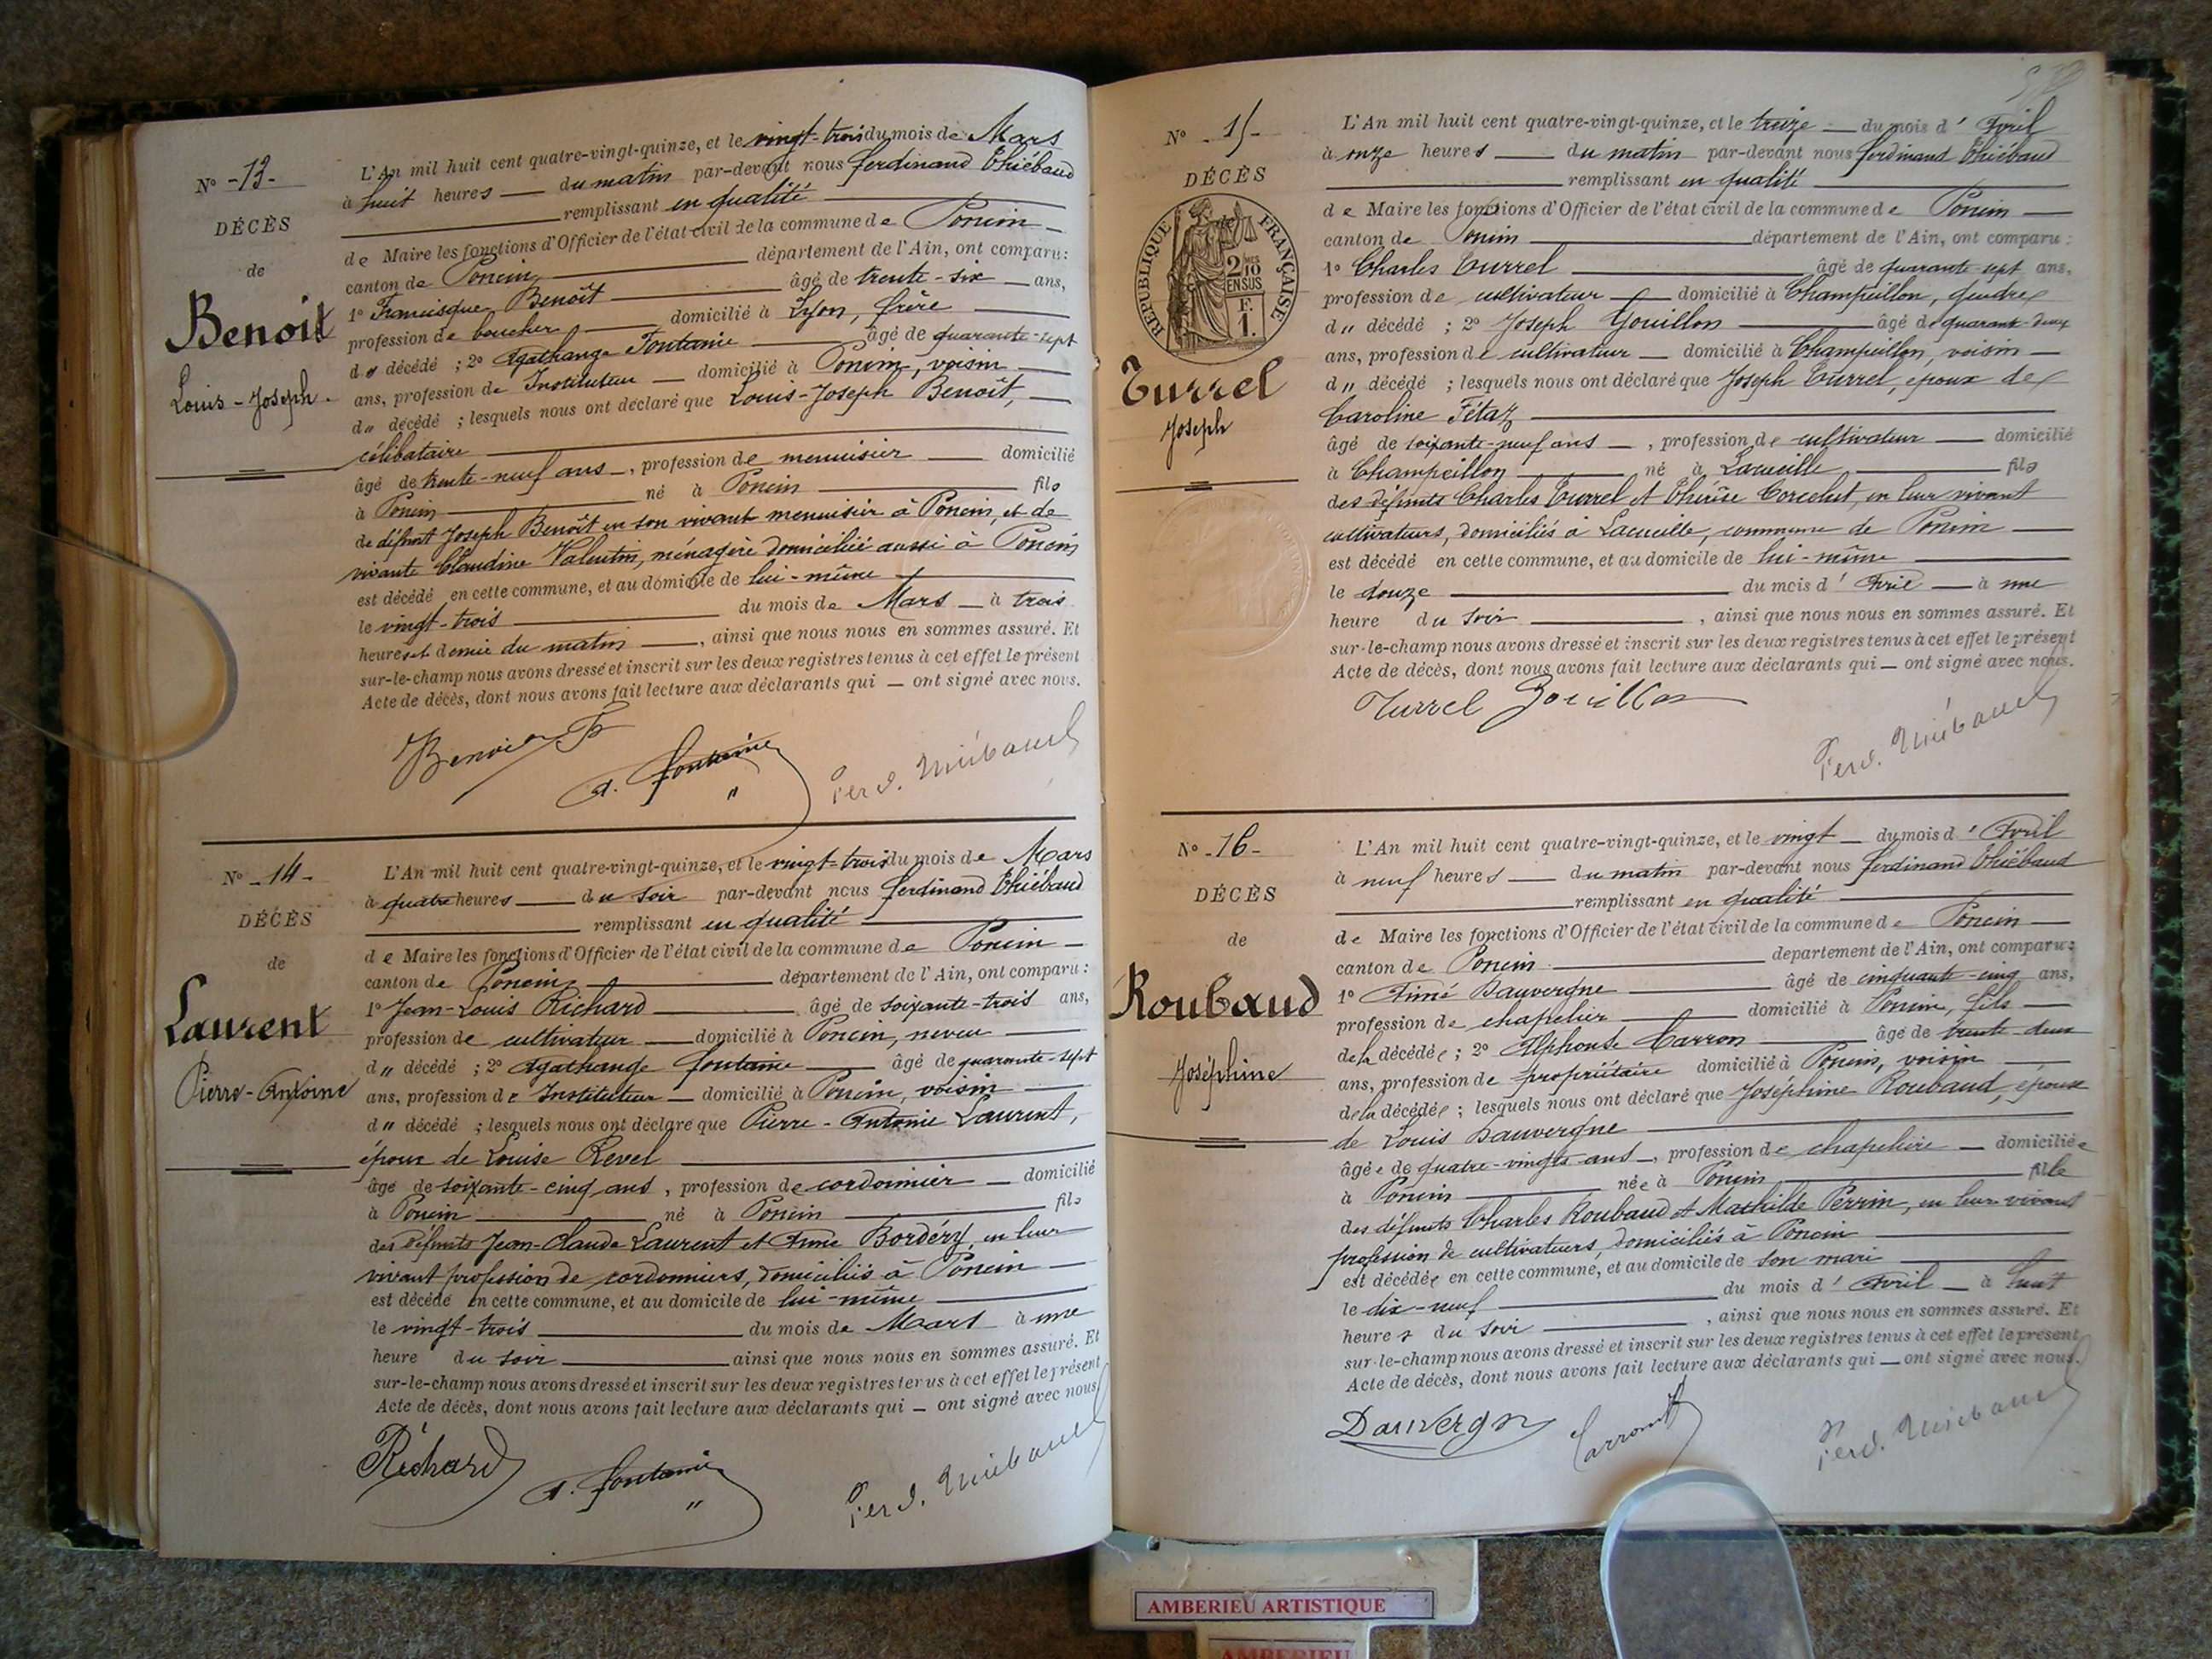 N° -13-
DÉCÈS
de
Benoit
Louis-Joseph.
L'An mil huit cent quatre-vingt-quinze, et le vingt-trois du mois de Mars
à huit heures — du matin par-devant nous Ferdinand Thiébaud
remplissant en qualité
de Maire les fonctions d'Officier de l'état civil de la commune de Poncin
canton de Poncin département de l'Ain, ont comparu :
1° Francisque Benoît âgé de trente-six ans,
profession de boucher domicilié à Lyon, frère
du décédé ; 2° Agathange Fontaine âgé de quarante-sept
ans, profession de Instituteur domicilié à Poncin, voisin
du décédé ; lesquels nous ont déclaré que Louis-Joseph Benoît,
célibataire
âgé de trente-neuf ans, profession de menuisier domicilié
à Poncin né à Poncin fils
de défunt Joseph Benoît en son vivant menuisier à Poncin, et de
vivante Claudine Valentin, ménagère domiciliée aussi à Poncin
est décédé en cette commune, et au domicile de lui-même
le vingt-trois du mois de Mars à trois
heures et demie du matin, ainsi que nous nous en sommes assuré. Et
sur-le-champ nous avons dressé et inscrit sur les deux registres tenus à cet effet le présent
Acte de décès, dont nous avons fait lecture aux déclarants qui — ont signé avec nous.
Benoit F
A. Fontaine
Ferd. Thiébaud
N° -14-
DÉCÈS
de
Laurent
Pierre-Antoine
L'An mil huit cent quatre-vingt-quinze, et le vingt-trois du mois de Mars
à quatre heures — du soir par-devant nous Ferdinand Thiébaud
remplissant en qualité
de Maire les fonctions d'Officier de l'état civil de la commune de Poncin
canton de Poncin département de l'Ain, ont comparu :
1° Jean-Louis Richard âgé de soixante-trois ans,
profession de cultivateur domicilié à Poncin, neveu
du décédé ; 2° Agathange Fontaine âgé de quarante-sept
ans, profession de Instituteur domicilié à Poncin, voisin
du décédé ; lesquels nous ont déclaré que Pierre-Antoine Laurent,
époux de Louise Revel
âgé de soixante-cinq ans, profession de cordonnier domicilié
à Poncin né à Poncin fils
des défunts Jean-Claude Laurent et Anne Bordéry, en leur
vivant profession de cordonniers, domiciliés à Poncin
est décédé en cette commune, et au domicile de lui-même
le vingt-trois du mois de Mars à une
heure du soir ainsi que nous nous en sommes assuré. Et
sur-le-champ nous avons dressé et inscrit sur les deux registres tenus à cet effet le présent
Acte de décès, dont nous avons fait lecture aux déclarants qui — ont signé avec nous
Richard
A. Fontaine
Ferd. Thiébaud
N° -15-
DÉCÈS
de
RÉPUBLIQUE FRANÇAISE
2/10 EN SUS
F. 1.
Turrel
Joseph
L'An mil huit cent quatre-vingt-quinze, et le treize — du mois d'Avril
à onze heures — du matin par-devant nous Ferdinand Thiébaud
remplissant en qualité
de Maire les fonctions d'Officier de l'état civil de la commune de Poncin
canton de Poncin département de l'Ain, ont comparu :
1° Charles Turrel âgé de quarante-sept ans,
profession de cultivateur domicilié à Champeillon, gendre
du décédé ; 2° Joseph Gouillon âgé de quarante-deux
ans, profession de cultivateur domicilié à Champeillon, voisin
du décédé ; lesquels nous ont déclaré que Joseph Turrel, époux de
Caroline Fétaz
âgé de soixante-neuf ans, profession de cultivateur domicilié
à Champeillon né à Lacueille fils
des défunts Charles Turrel et Thérèse Corcelet, en leur vivant
cultivateurs, domiciliés à Lacueille, commune de Poncin
est décédé en cette commune, et au domicile de lui-même
le douze du mois d'Avril à une
heure du soir, ainsi que nous nous en sommes assuré. Et
sur-le-champ nous avons dressé et inscrit sur les deux registres tenus à cet effet le présent
Acte de décès, dont nous avons fait lecture aux déclarants qui — ont signé avec nous.
Turrel Gouillon
Ferd. Thiébaud
N° -16-
DÉCÈS
de
Roubaud
Joséphine
L'An mil huit cent quatre-vingt-quinze, et le vingt — du mois d'Avril
à neuf heures — du matin par-devant nous Ferdinand Thiébaud
remplissant en qualité
de Maire les fonctions d'Officier de l'état civil de la commune de Poncin
canton de Poncin département de l'Ain, ont comparu :
1° Aimé Dauvergne âgé de cinquante-cinq ans,
profession de chapelier domicilié à Poncin, fils
de la décédée ; 2° Alphonse Carron âgé de trente-deux
ans, profession de propriétaire domicilié à Poncin, voisin
de la décédée ; lesquels nous ont déclaré que Joséphine Roubaud, épouse
de Louis Dauvergne
âgée de quatre-vingts ans, profession de chapelière domiciliée
à Poncin née à Poncin fille
des défunts Charles Roubaud et Mathilde Perrin, en leur vivant
profession de cultivateurs, domiciliés à Poncin
est décédée en cette commune, et au domicile de son mari
le dix-neuf du mois d'Avril à huit
heures du soir, ainsi que nous nous en sommes assuré. Et
sur-le-champ nous avons dressé et inscrit sur les deux registres tenus à cet effet le présent
Acte de décès, dont nous avons fait lecture aux déclarants qui — ont signé avec nous.
Dauvergne
Carron
Ferd. Thiébaud
AMBERIEU ARTISTIQUE
AMBERIEU